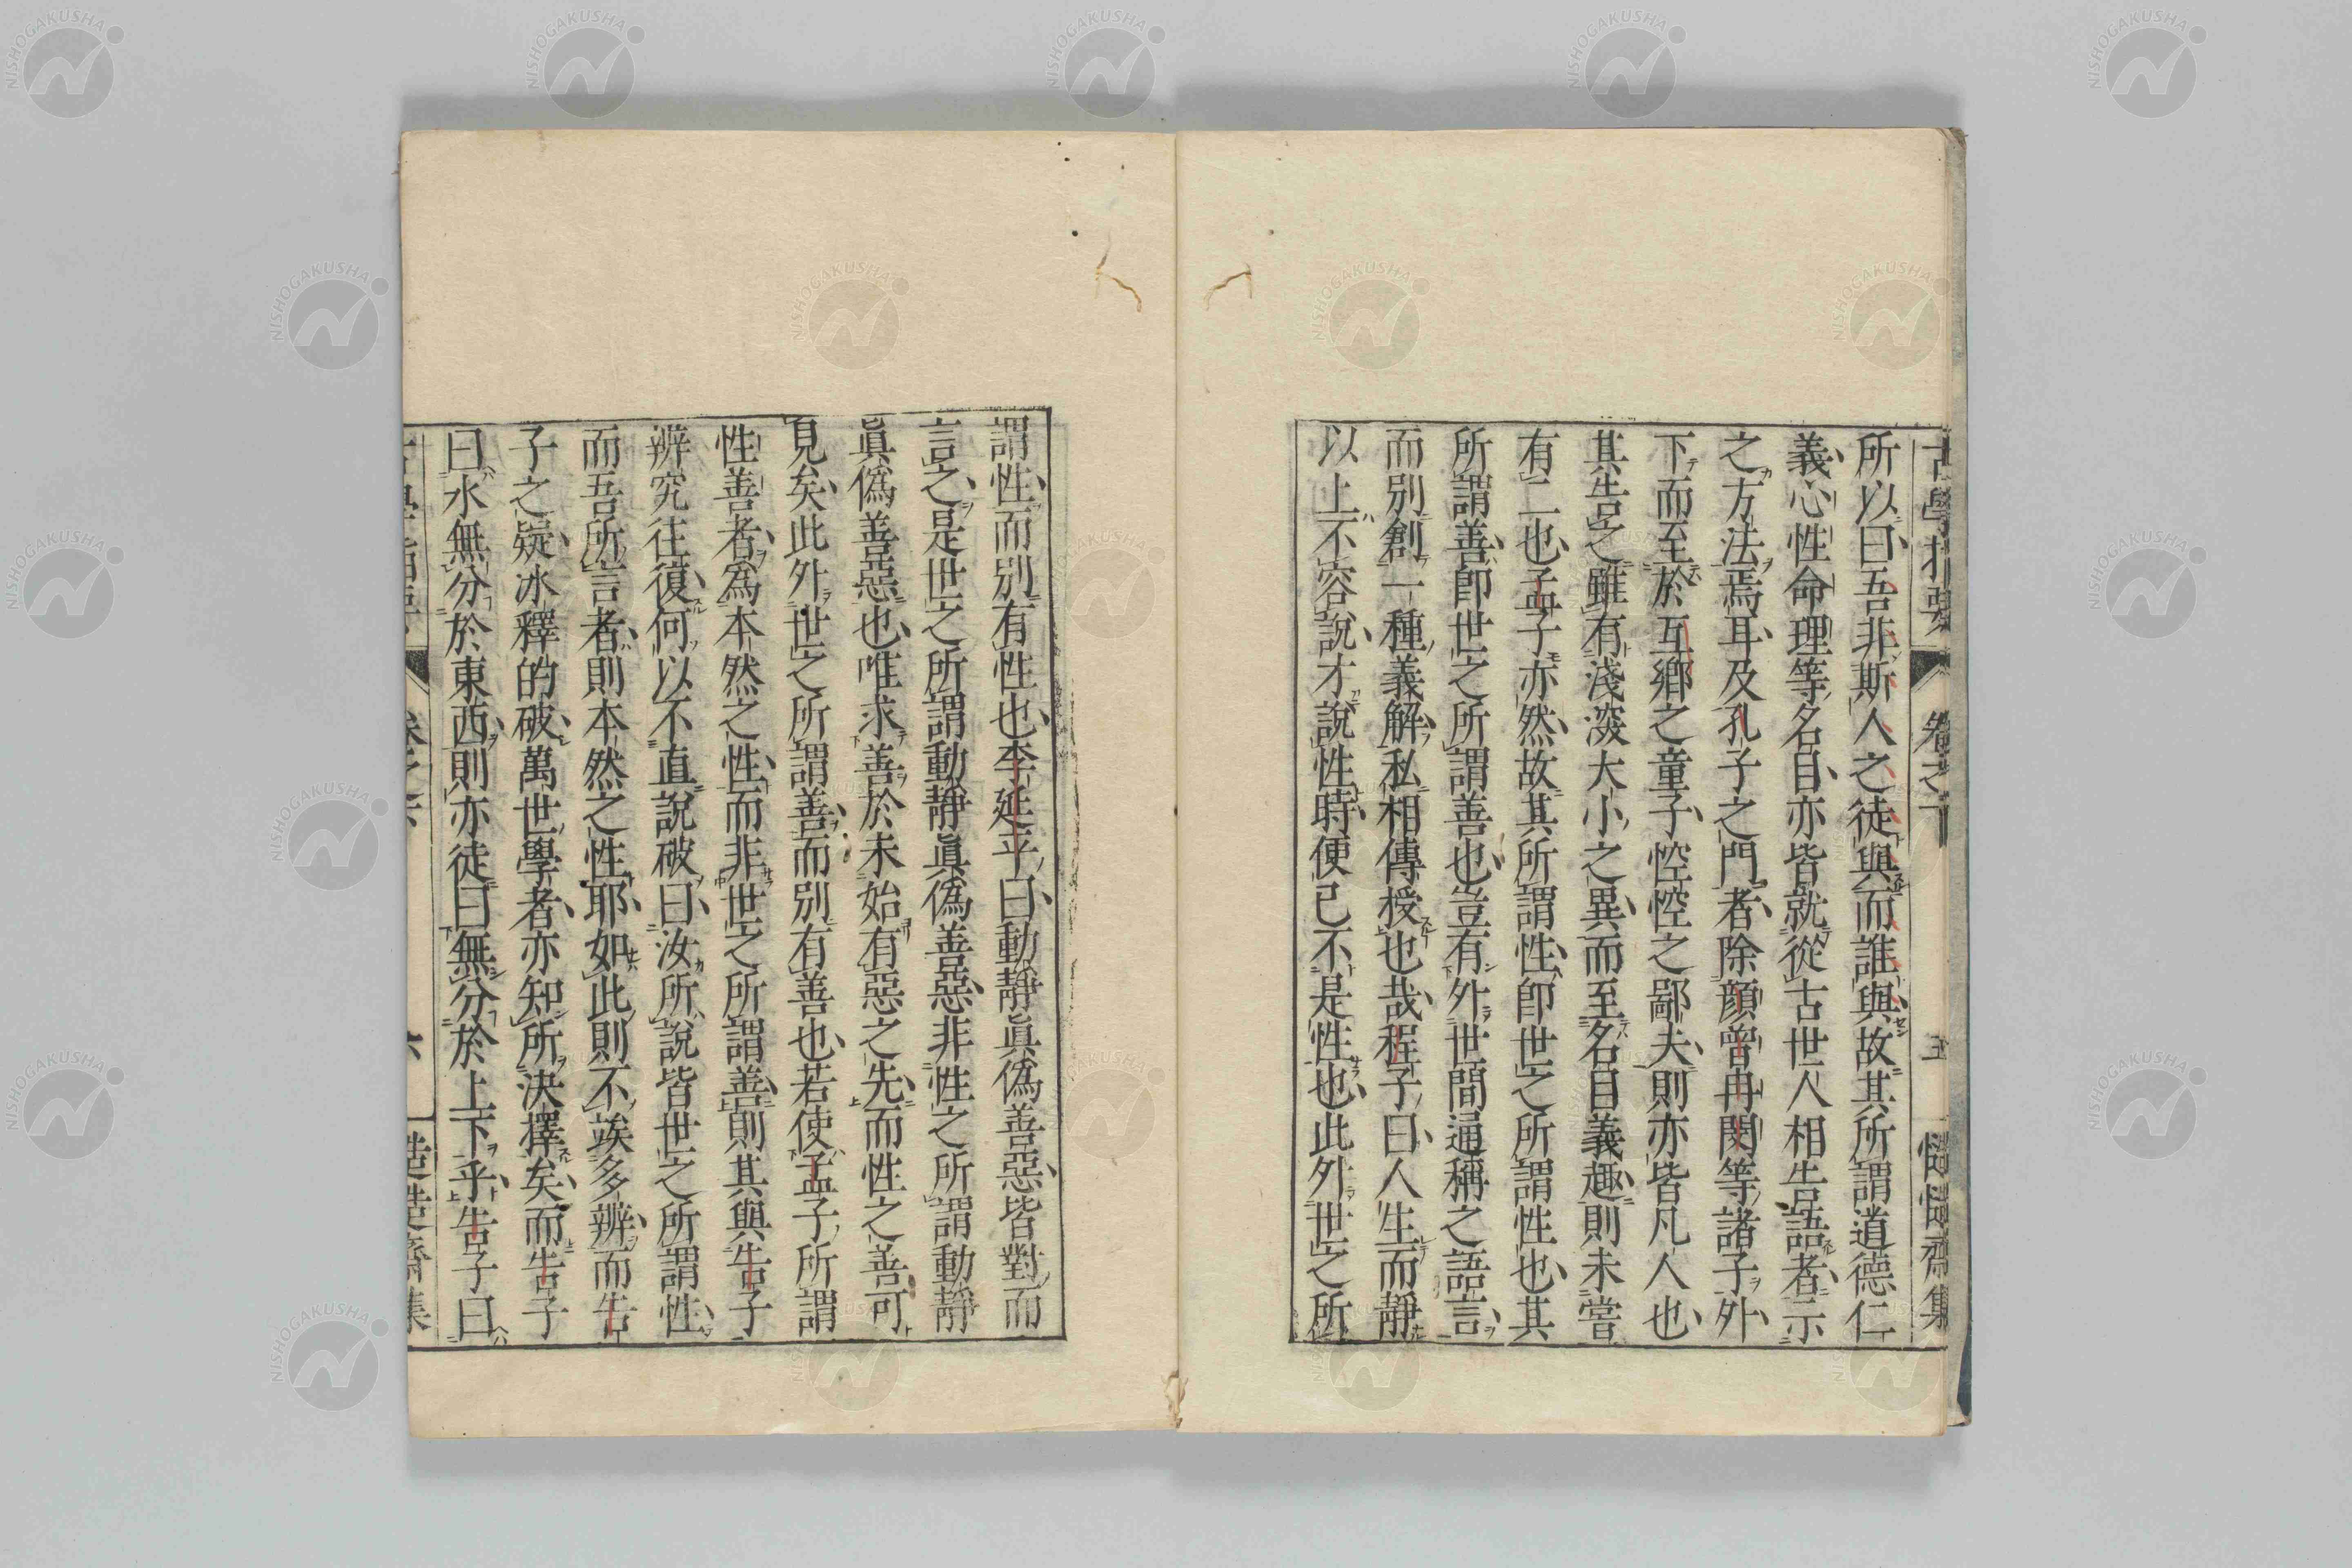 古學指要 卷之下 五 慥慥齋集
所以曰吾非斯人之徒與而誰與故其所謂道德仁
義心性命理等名目亦皆就從古世人相告語者示
之方法焉耳及孔子之門者除顔曾冉閔等諸子外
下而至於互鄉之童子悾悾之鄙夫則亦皆凡人也
其告之雖有淺深大小之異而至名目義趣則未嘗
有二也孟子亦然故其所謂性卽世之所謂性也其
所謂善卽世之所謂善也豈有外世間通稱之語言
而別創一種義解私相傳授也哉程子曰人生而靜
以上不容說才說性時便已不是性也此外世之所
謂性而別有性也李延平曰動靜眞僞善惡皆對而
言之是世之所謂動靜眞僞善惡非性之所謂動靜
眞僞善惡也唯求善於未始有惡之先而性之善可
見矣此外世之所謂善而別有善也若使孟子所謂
性善者爲本然之性而非世之所謂善則其與告子
辨究往復何以不直說破曰汝所說皆世之所謂性
而吾所言者則本然之性耶如此則不竢多辨而告
子之疑冰釋的破萬世學者亦知所決擇矣而告子
曰水無分於東西則亦徒曰無分於上下乎告子曰
NISHOGAKUSHA